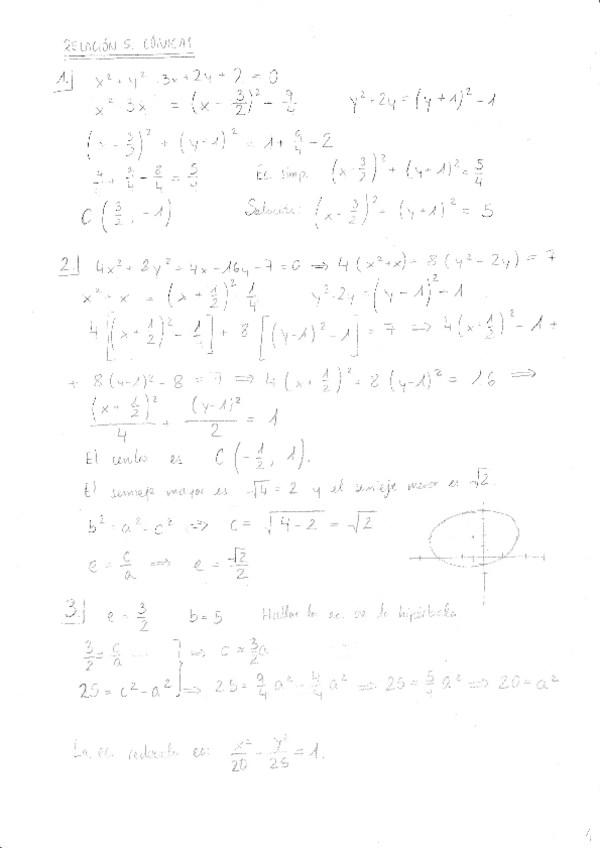 RELACIÓN 5. CÓNICAS
1.) x² + y² - 3x + 2y + 2 = 0
x² - 3x = (x - 3/2)² - 9/4    y² + 2y = (y+1)² - 1
(x - 3/2)² + (y+1)² = 1 + 9/4 - 2
4/4 + 9/4 - 8/4 = 5/4    Ec. simp. (x - 3/2)² + (y+1)² = 5/4
C(3/2, -1)    Solución: (x - 3/2)² (y+1)² = 5
2.) 4x² + 8y² + 4x - 16y - 7 = 0 ⇒ 4(x²+x) + 8(y² - 2y) = 7
x² + x = (x + 1/2)² - 1/4    y² - 2y = (y-1)² - 1
4[(x + 1/2)² - 1/4] + 8[(y-1)² - 1] = 7 ⇒ 4(x + 1/2)² - 1 +
+ 8(y-1)² - 8 = 7 ⇒ 4(x + 1/2)² + 8(y-1)² = 16 ⇒
(x + 1/2)²/4 + (y-1)²/2 = 1
El centro es C(-1/2, 1).
El semieje mayor es √4 = 2 y el semieje menor es √2.
b² = a² - c² ⇒ c = √(4-2) = √2
e = c/a ⇒ e = √2/2
3.) e = 3/2    b = 5    Hallar la ec. de la hipérbola
3/2 = c/a ⇒ c = 3/2 a
25 = c² - a² ⇒ 25 = 9/4 a² - 4/4 a² ⇒ 25 = 5/4 a² ⇒ 20 = a²
La ec. reducida es: x²/20 - y²/25 = 1.
1